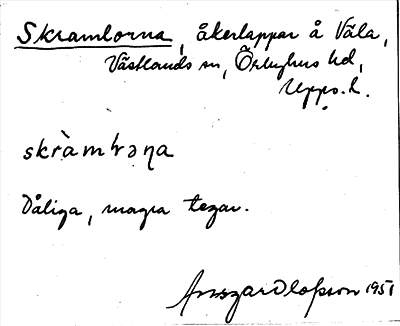 Skramlorna, åkerlappar å Väla,
Västlands sn, Örbyhus hd,
Upps. l.
skràmlrəṇa
Dåliga, magra tegar.
Ansgar Olofsson 1951